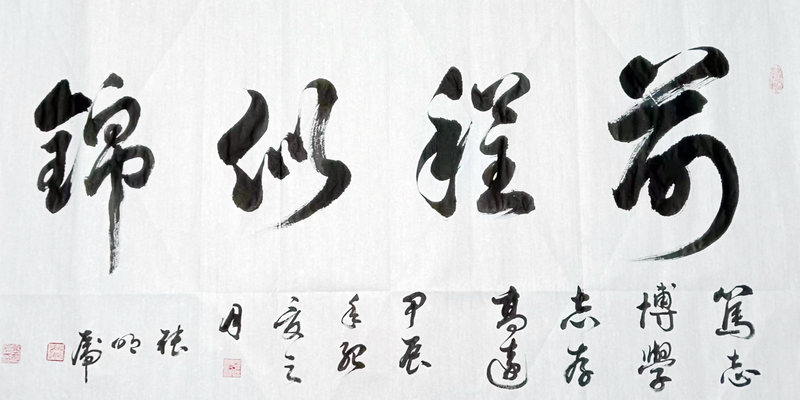 前程似錦
篤志
博學
志存
高遠
甲辰
年初
夏之
月
張
明
虎